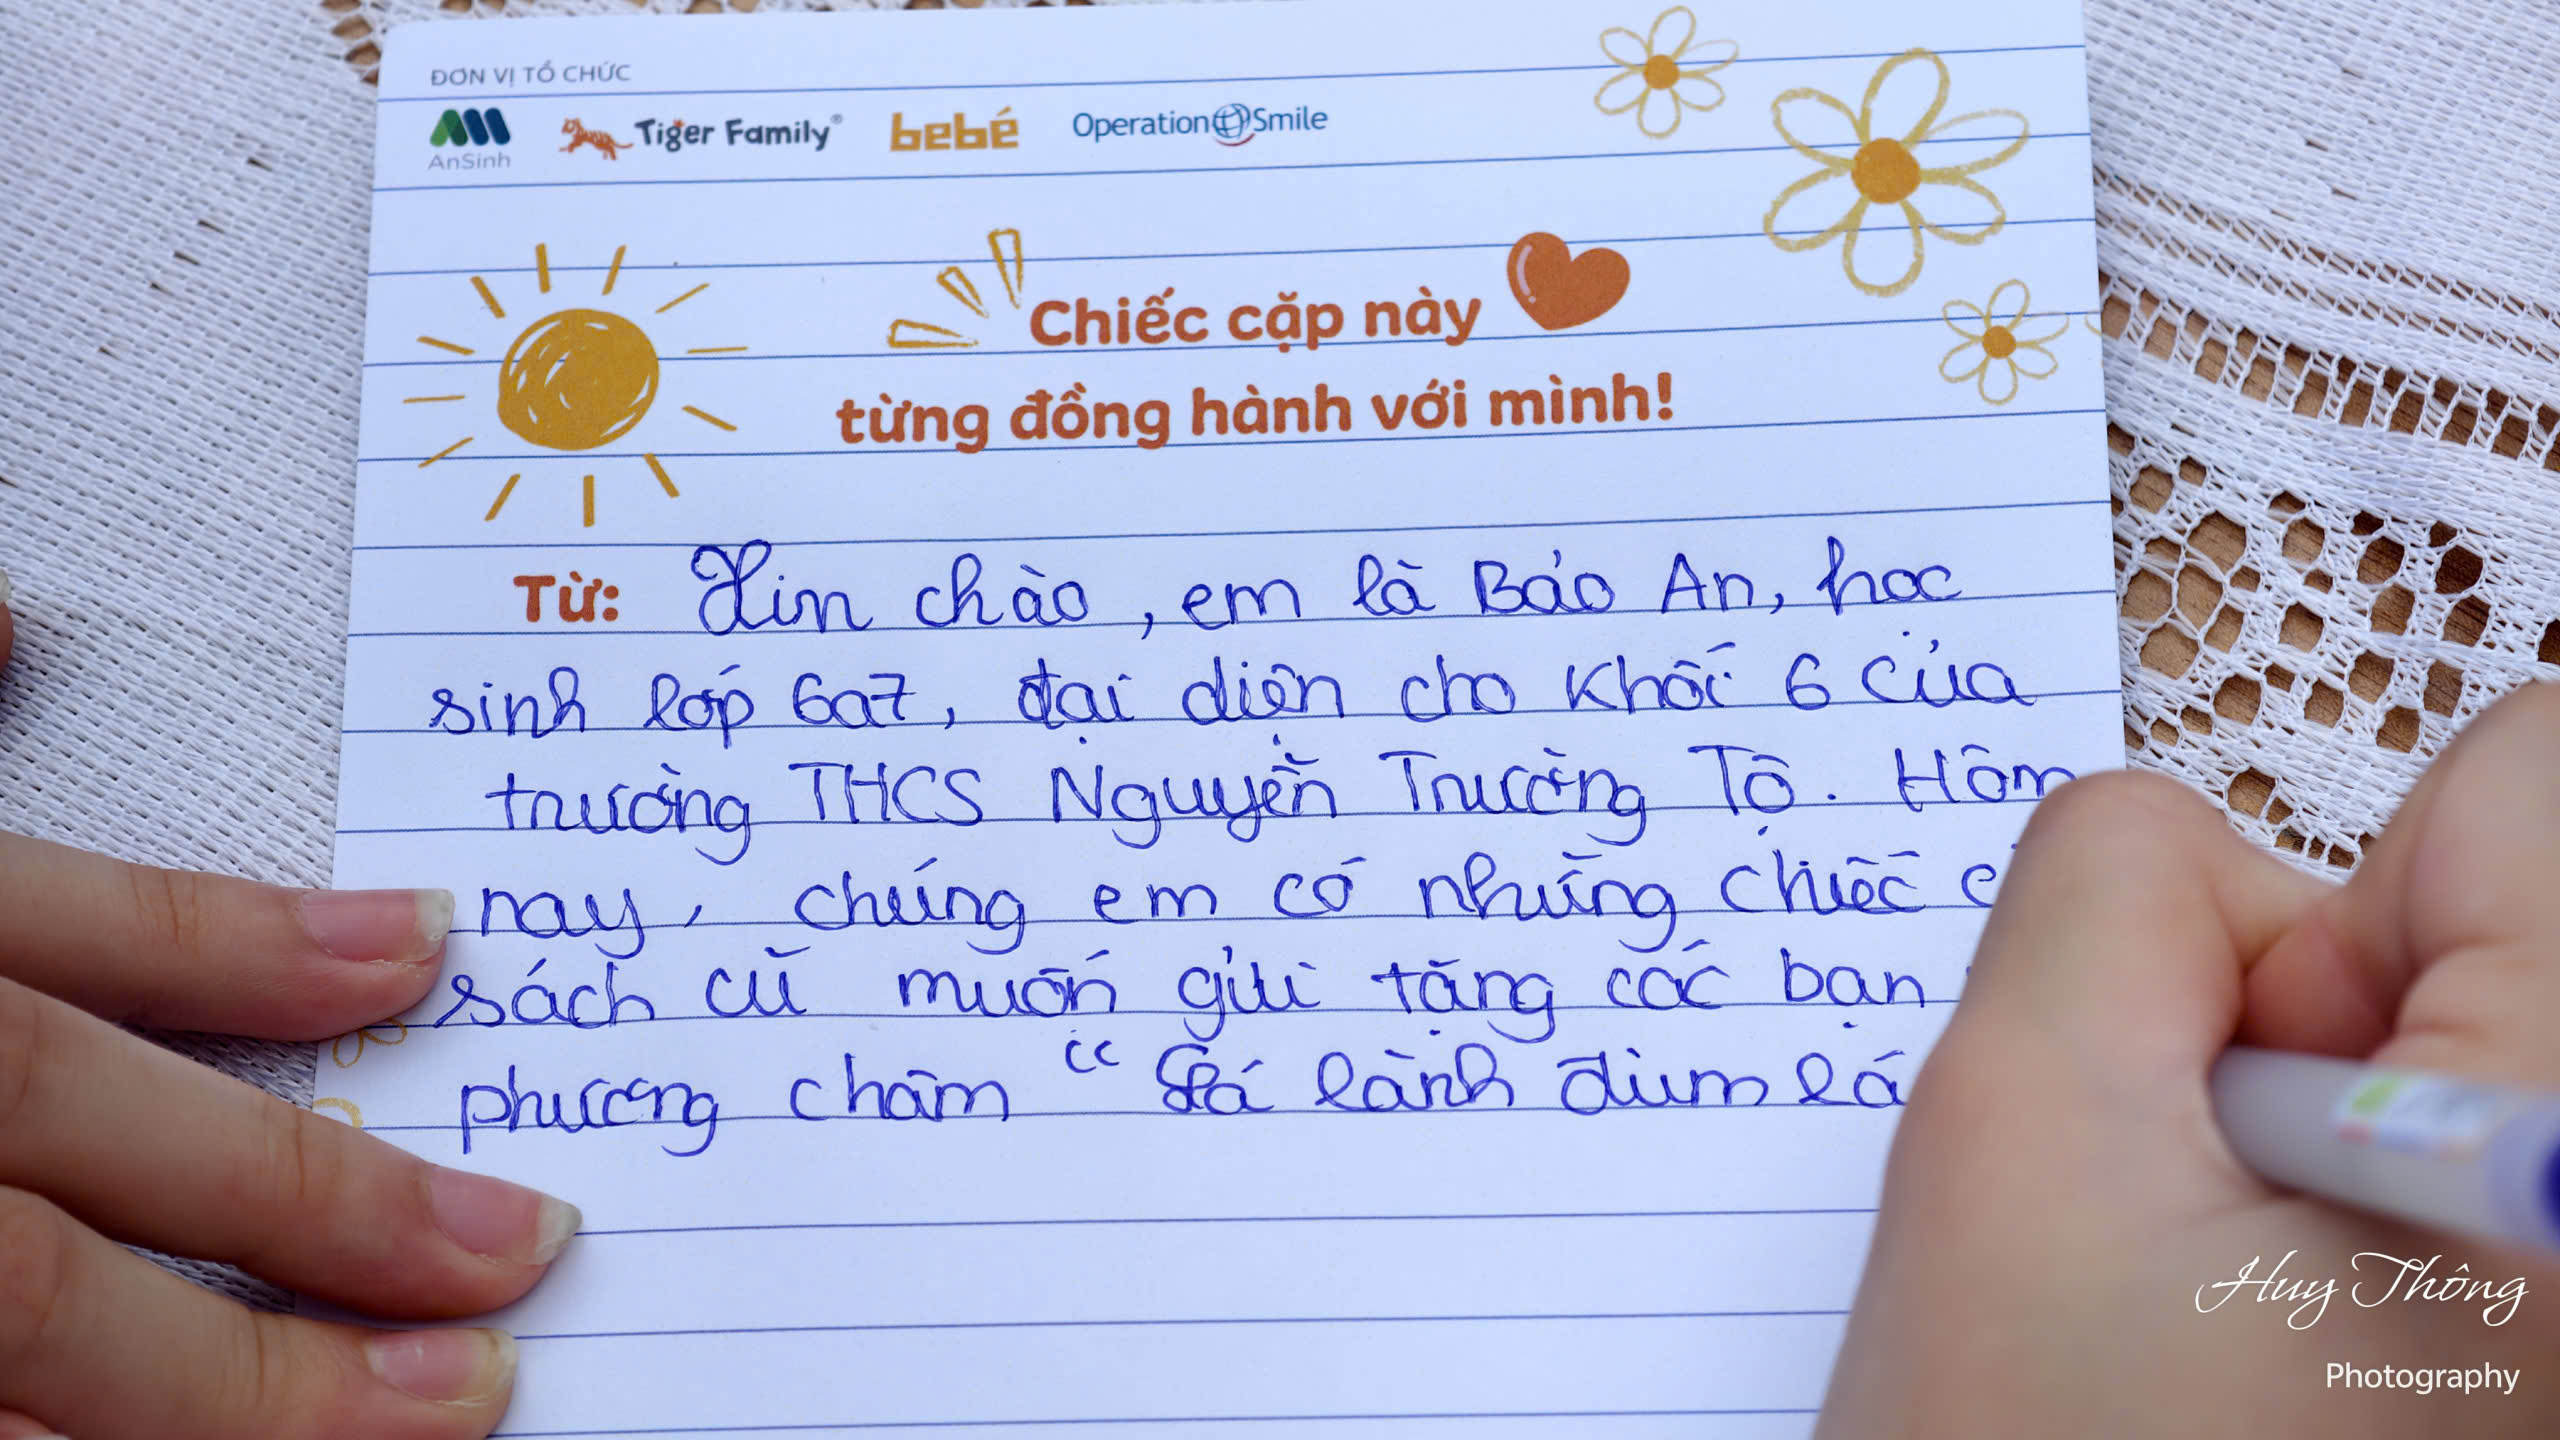 ĐƠN VỊ TỔ CHỨC
AnSinh Tiger Family® bebé Operation Smile
Chiếc cặp này
từng đồng hành với mình!
Từ: Xin chào, em là Bảo An, học
sinh lớp 6a7, đại diện cho khối 6 của
trường THCS Nguyễn Trường Tộ. Hôm
nay, chúng em có những chiếc
sách cũ muốn gửi tặng các bạn
phương châm “ Lá lành đùm lá
Huy Thông
Photography